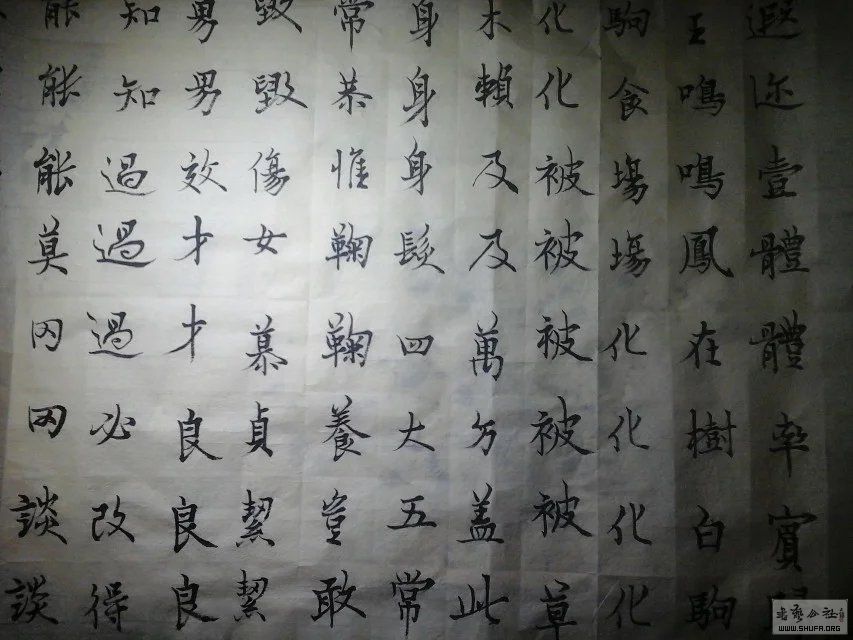 遐迩壹體體率賓
王鳴鳴鳳在樹白駒
駒食場場化化化化
化化被被被被被草
木賴及及萬方蓋此
身身身髮四大五常
常恭惟鞠鞠養豈敢
毀毀傷女慕貞絜絜
男男效才才良良良
知知過過過必改得
能能能莫罔罔談談
WWW.SHUFA.ORG